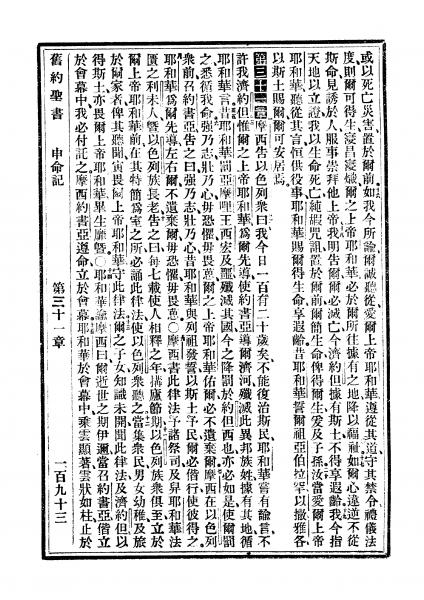 或以死亡災害置於爾前如我今所諭爾誠聽從愛爾上帝耶和華遵從其道守其禁令禮儀法
度則爾可得生寖昌寖熾爾之上帝耶和華必於爾所往據有之地降以福祉如爾心違逆不從
斯命見誘於人服事崇拜他上帝我明告爾爾必滅亡今濟約但據有斯土不得享遐齡我今指
天地以立證我以生命死亡純嘏咒詛置於爾前爾簡生命俾得爾生爰及子孫汝當愛爾上帝
耶和華聽從其言恒供役事耶和華賜爾得生命享遐齡昔耶和華誓爾祖亞伯拉罕以撒雅各
以斯土賜爾爾可安居焉
第三十一章摩西告以色列衆曰我今日一百有二十歲矣不能復治斯民耶和華嘗有諭言不
許我濟約但惟爾之上帝耶和華爲爾先導使約書亞導爾濟河殲滅此異邦族姓據有其地循
耶和華言昔耶和華罰亞摩哩王西宏及噩殲滅其國今之降罰於約但西也亦必如是使爾罰
之悉循我命強乃志壯乃心毋恐懼毋畏葸爾之上帝耶和華佑爾必不遺棄爾摩西在以色列
衆前召約書亞告之曰強乃志壯乃心昔耶和華與列祖發誓以斯土予民爾必偕行使彼得之
耶和華爲爾先導左右爾不遺棄爾毋恐懼毋畏葸○摩西書此律法予諸祭司及舁耶和華法
匱之利未人曁以色列族長老告之曰每七載使人相釋之年搆廬節期以色列族衆俱至立於
爾上帝耶和華前在其特簡爲室之所必誦此律法使以色列衆聽之當集衆民男女幼稚及旅
於爾家者俾其聽聞寅畏爾上帝耶和華守此律法爾之子女知識未開聞此律法及濟約但以
得斯土亦畏爾上帝耶和華畢生靡曁○耶和華諭摩西曰爾逝世之期伊邇當召約書亞偕立
於會幕中我必付託之摩西約書亞遵命立於會幕耶和華於會幕中乘雲顯著雲狀如柱止於
舊約聖書 申命記 第三十一章 一百九十三